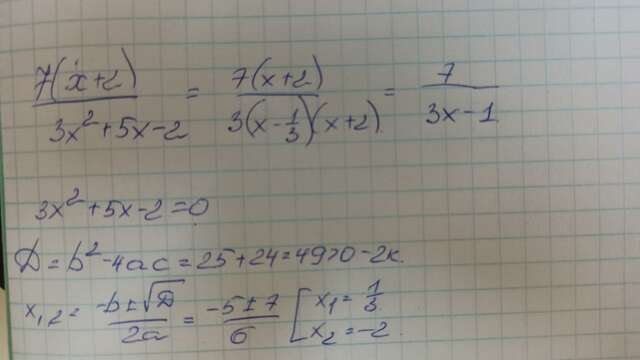 7(x+2)/(3x²+5x-2) = 7(x+2)/(3(x-1/3)(x+2)) = 7/(3x-1)
3x²+5x-2=0
D=b²-4ac=25+24=49>0-2к.
x₁,₂= (-b±√D)/(2a) = (-5±7)/6 [x₁=1/3
x₂=-2